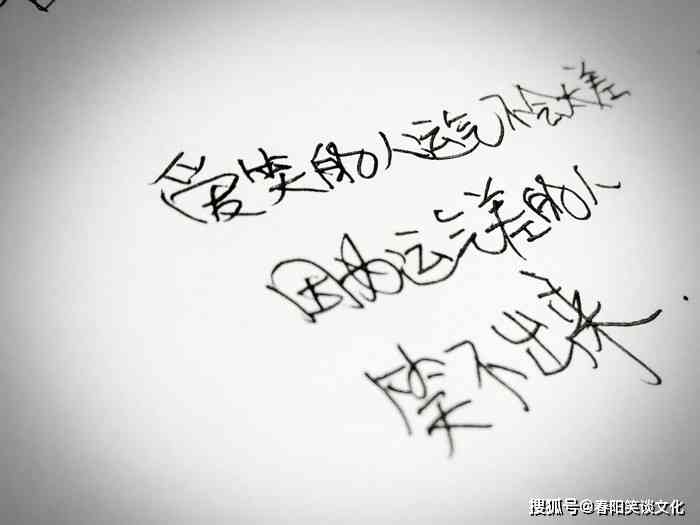 爱笑的人运气不会太差
因为运气差的人
笑不出来
搜狐号@春阳笑谈文化